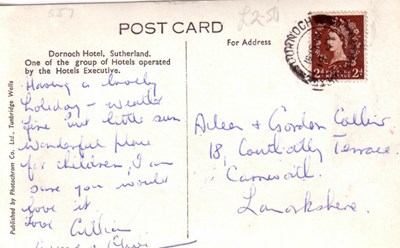 557
£2-50
POST CARD
Dornoch Hotel, Sutherland.
One of the group of Hotels operated
by the Hotels Executive.
For Address
DORNOCH
2d 2d
Published by Photochrom Co. Ltd., Tunbridge Wells
Having a lovely
holiday - weather
fine but little sun
Wonderful place
for children, I am
sure you would
love it
Love Lillian
Aileen & Gordon Collier
18, Terrace
Lanarkshire.